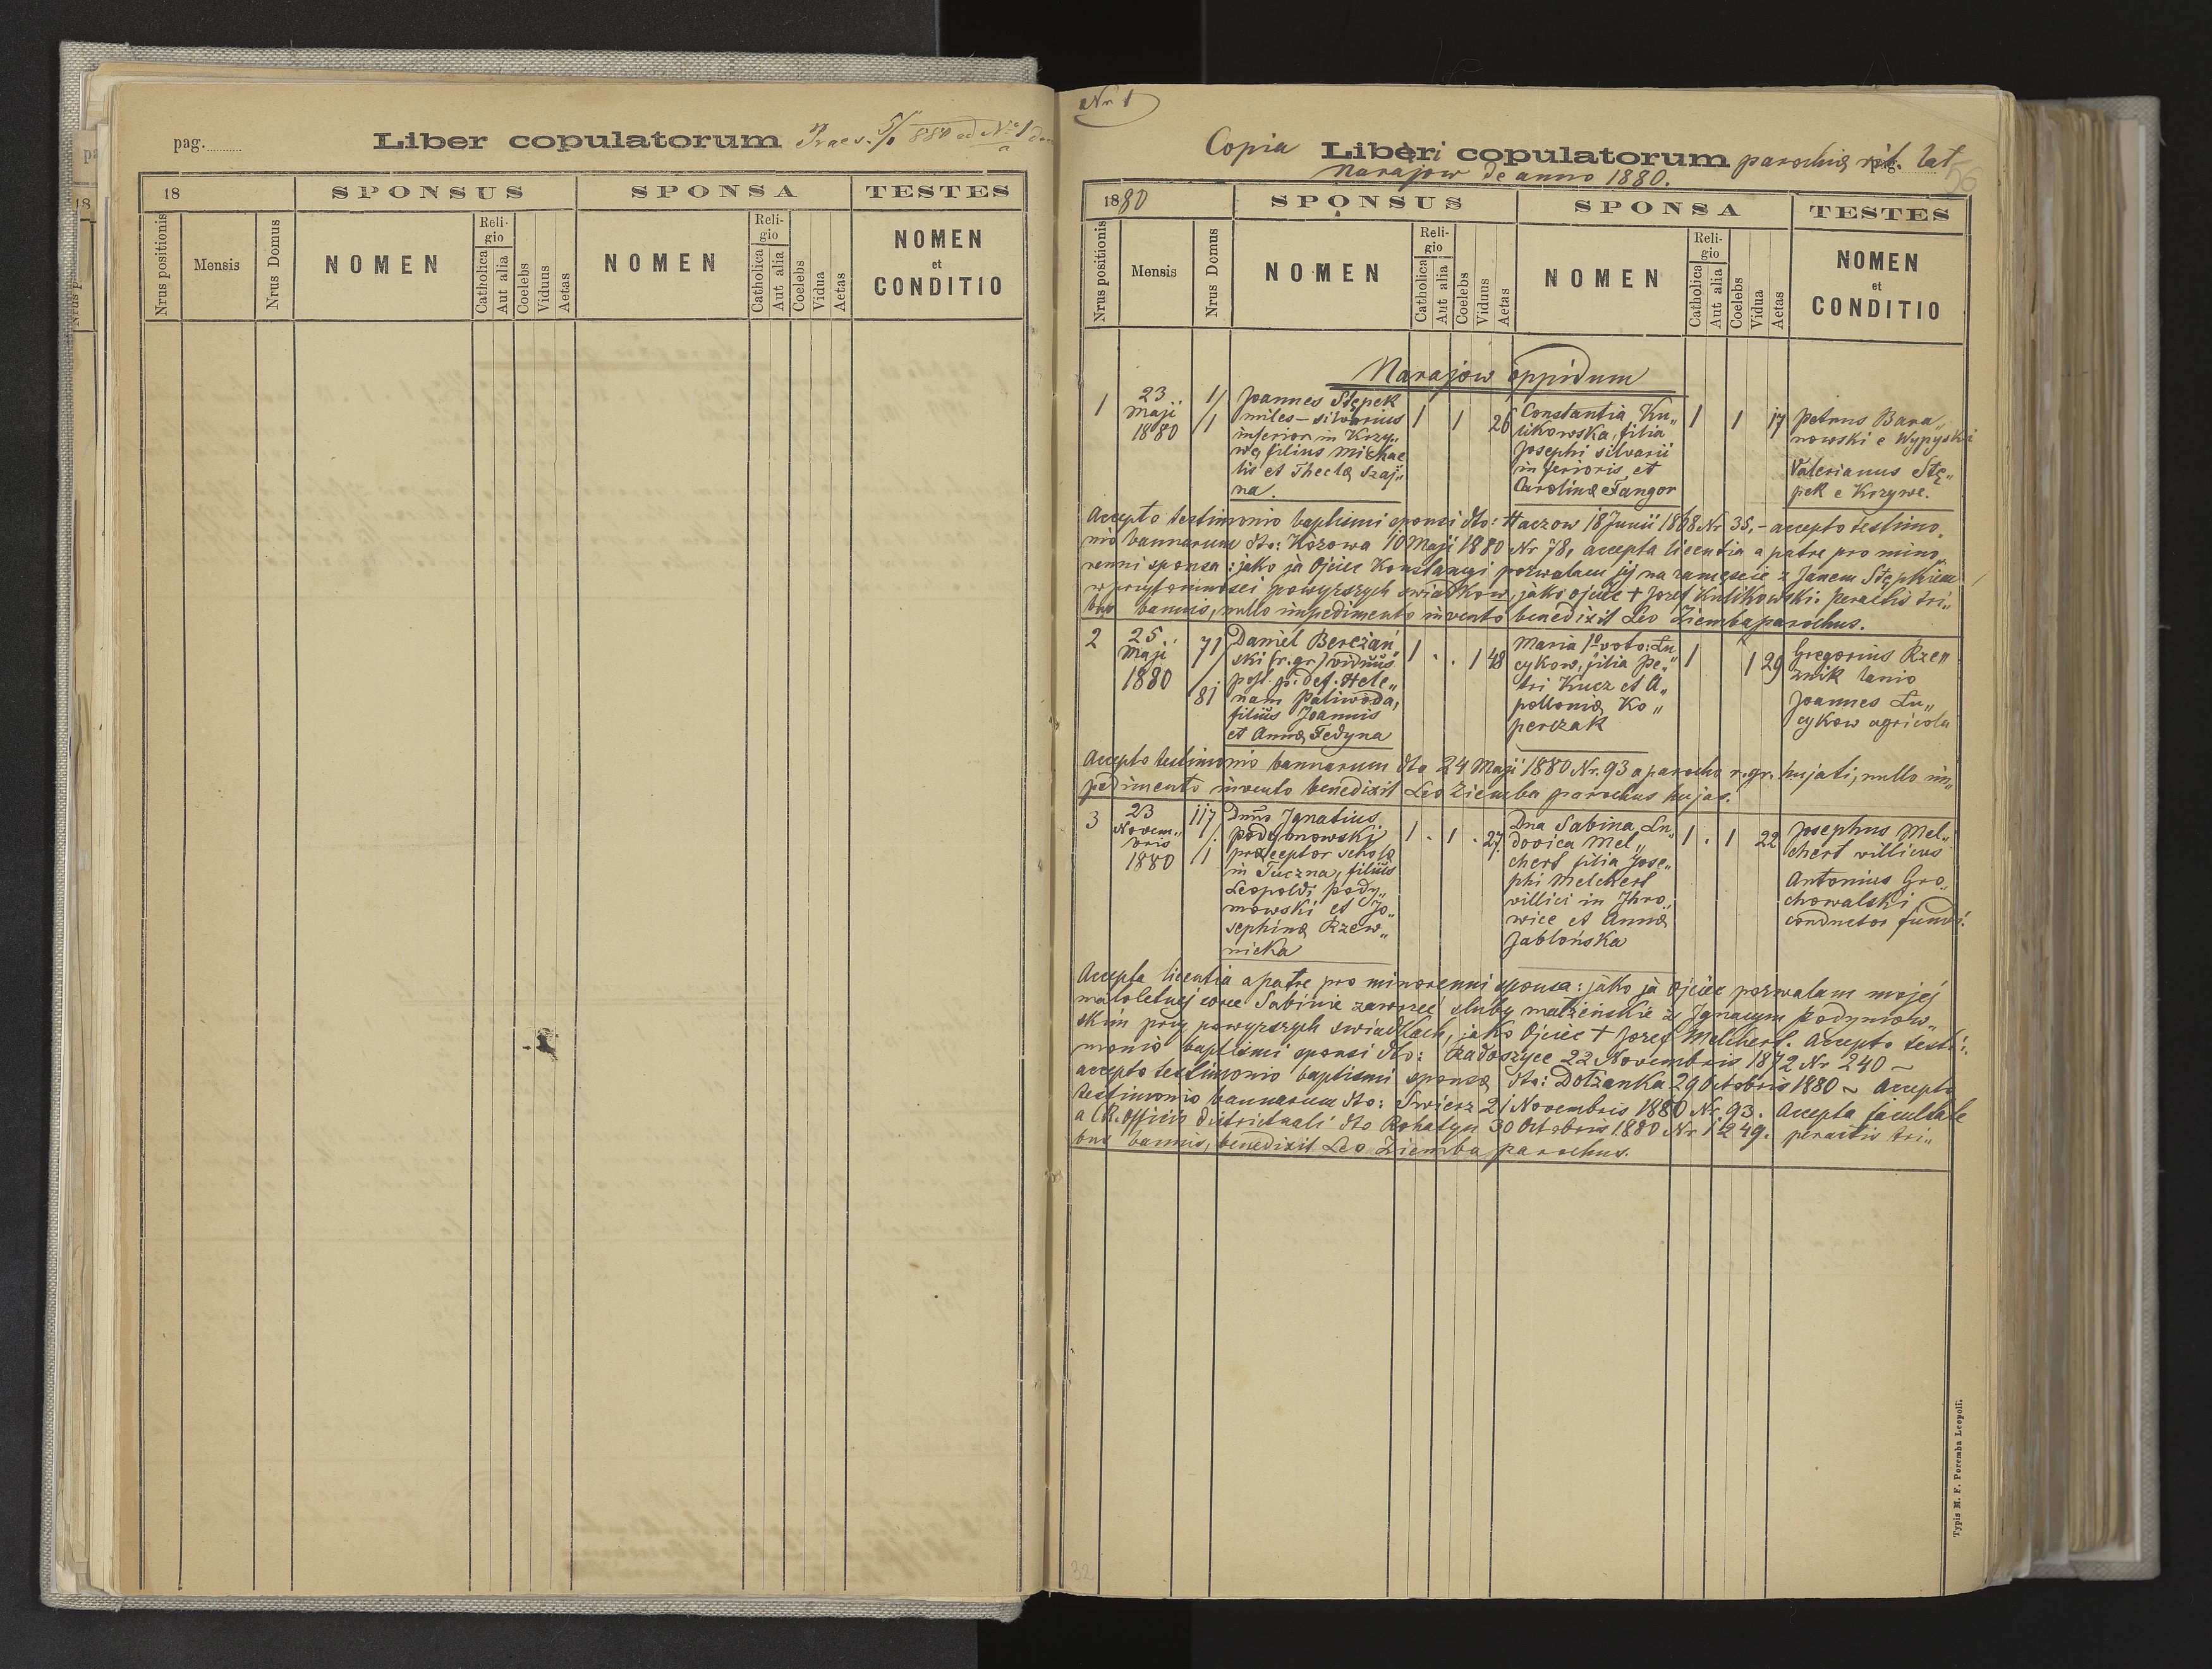 pag.
Liber copulatorum
18
SPONSUS
SPONSA
TESTES
Nrus positionis
Mensis
Nrus Domus
NOMEN
Religio
Catholica
Aut alia
Coelebs
Viduus
Aetas
NOMEN
Religio
Catholica
Aut alia
Coelebs
Vidua
Aetas
NOMEN
et
CONDITIO
Nr 1
Copia Liberi copulatorum parochiæ rit. lat.
pag. 56
Narajow de anno 1880.
1880
SPONSUS
SPONSA
TESTES
Nrus positionis
Mensis
Nrus Domus
NOMEN
Religio
Catholica
Aut alia
Coelebs
Viduus
Aetas
NOMEN
Religio
Catholica
Aut alia
Coelebs
Vidua
Aetas
NOMEN
et
CONDITIO
Narajow oppidum
1
23
Maji
1880
1/
/1
Joannes Stępek
miles – silvarius
inferior in Krzy„
we, filius Michae
lis et Theclæ Szaj„
na.
1
1
26
Constantia Ku„
likowska, filia
Josephi silvarii
inferioris et
Carolinæ Fangor
1
1
17
Petrus Bara„
nowski e Wypyski
Valerianus Stę„
pek e Krzywe.
Accepto testimonio baptismi sponsi dto: Haczow 18 Junii 1868 Nr 35, – accepto testimo„
nio bannorum dto: Kozowa 10 Maji 1880 Nr 78, accepta licentia a patre pro mino„
renni sponsa: jako ja Ojciec Konstancyi pozwalam jej na zamęscie z Janem Stępkiem
w przytomnosci powyższych swiadkow, jako ojciec + Jozef Kulikowski. Peractis tri„
bus bannis, nullo impedimento invento benedixit Leo Ziemba parochus.
2
25
Maji
1880
71/
/81
Daniel Bereżań„
ski (r. gr.) viduus
post p. def. Hele„
nam Paliwoda,
filius Joannis
et Annæ Fedyna
1
.
.
1
48
Maria 1º voto: Łu
cykow, filia Pe„
tri Kucz et A„
polloniæ Ko„
perczak
1
1
29
Gregorius Rze„
znik lanio
Joannes Łu„
cykow agricola
Accepto testimonio bannorum dto 24 Maji 1880 Nr. 93 a parocho r. gr. hujati, nullo im„
pedimento invento benedixit Leo Ziemba parochus hujas.
3
23
Novem„
bris
1880
117/
/1
Dnus Ignatius
Podymowski
præceptor scholæ
in Tuczna, filius
Leopoldi Pody„
mowski et Jo„
sephinæ Rzew„
nicka
1
.
1
.
27
Dna Sabina Lu„
dovica Mel„
chert filia Jose„
phi Melchert
villici in Jhro„
wice et Annæ
Jabłońska
1
.
1
22
Josephus Mel„
chert villicus
Antonius Gro„
chowalski
conductor fundi.
Accepta licentia a patre pro minorenni sponsa: jako ja Ojciec pozwalam mojej
małoletniej corce Sabinie zawrzeć sluby małżeńskie z Ignacym Podymow„
skim przy powyższych swiadkach, jako Ojciec + Jozef Melchert. Accepto testi„
monio baptismi sponsi dto: Radoszyce 22 Novembris 1872 Nr 240 –
accepto testimonio baptismi sponsæ dto: Dołżanka 29 Octobris 1880 ~ Accepto
testimonio bannorum dto: Swierz 21 Novembris 1880 Nr. 93. Accepta facultate
a CR. Officio districtuali dto Rohatyn 30 Octobris 1880 Nr 11249. peractis tri„
bus bannis, benedixit Leo Ziemba parochus.
Typis M. F. Poremba Leopoli.
32